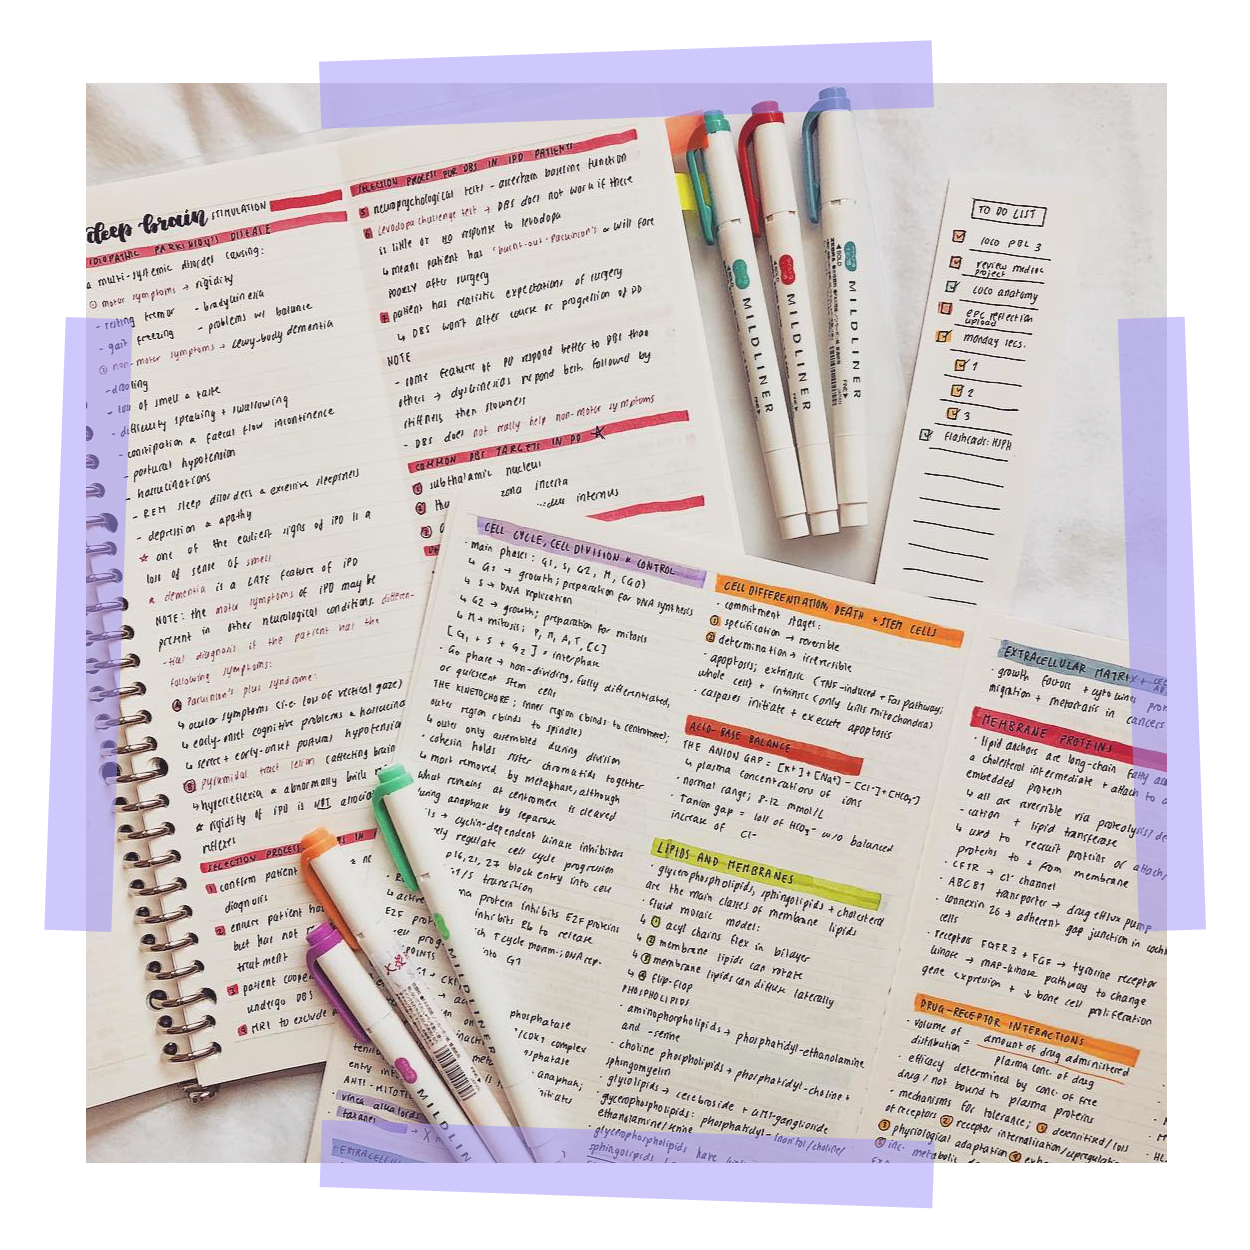 deep brain STIMULATION
IDIOPATHIC PARKINSON'S DISEASE
a multi-systemic disorder causing:
① motor symptoms → rigidity
- resting tremor - bradykinesia
- gait freezing - problems w/ balance
② non-motor symptoms → lewy-body dementia
- drooling
- loss of smell & taste
- difficulty speaking + swallowing
- constipation & faecal flow incontinence
- postural hypotension
- hallucinations
- REM sleep disorders & excessive sleepiness
- depression & apathy
☆ one of the earliest signs of iPD is a
loss of sense of smell
☆ dementia is a LATE feature of iPD
NOTE: the motor symptoms of iPD may be
present in other neurological conditions. differen-
-tial diagnosis if the patient has the
following symptoms:
Ⓐ Parkinson's plus syndrome:
↳ ocular symptoms (i.e. loss of vertical gaze)
↳ early-onset cognitive problems &
↳ severe + early-onset postural
Ⓑ Pyramidal tract lesion (affecting brain
↳ hyperreflexia & abnormally brisk
☆ rigidity of iPD is NOT
reflexes
SELECTION PROCESS
1 confirm patient
diagnosis
2 ensure patient has
but has not
treatment
3 patient
undergo DBS
4 MRI to exclude
SELECTION PROCESS FOR DBS IN IPD PATIENTS
5 neuropsychological tests - ascertain baseline function
6 Levodopa challenge test → DBS does not work if there
is little or no response to levodopa
↳ means patient has 'burnt-out-Parkinson's' & will fare
POORLY after surgery
7 patient has realistic expectations of surgery
↳ DBS won't alter course or progression of PD
NOTE
- some features of PD respond better to DBS than
others → dyskinesias respond best, followed by
stiffness then slowness
- DBS does not really help non-motor symptoms
COMMON DBS TARGETS IN PD
① subthalamic nucleus
zona incerta
internus
MILDLINER
MILDLINER
MILDLINER
TO DO LIST
loco PBL 3
review medsoc
project
loco anatomy
EPC reflection
upload
monday lecs.
1
2
3
flashcards: HSPH
CELL CYCLE, CELL DIVISION & CONTROL
· main phases: G1, S, G2, M, (G0)
↳ G1 → growth; preparation for DNA synthesis
↳ S → DNA replication
↳ G2 → growth; preparation for mitosis
↳ M → mitosis; P, M, A, T, [C]
[G1 + S + G2] = interphase
· G0 phase → non-dividing, fully differentiated,
or quiescent stem cells
THE KINETOCHORE; inner region (binds to centromere);
outer region (binds to spindle)
↳ outer only assembled during division
· cohesin holds sister chromatids together
↳ most removed by metaphase, although
what remains at centromere is cleaved
during anaphase by separase
→ cyclin-dependent kinase inhibitors
regulate cell cycle progression
p16, 21, 27 block entry into cell
G1/S transition
protein inhibits E2F proteins
inhibits Rb to release
into G1
phosphatase
/CDK1 complex
CELL DIFFERENTIATION, DEATH + STEM CELLS
· commitment stages:
① specification → reversible
② determination → irreversible
· apoptosis; extrinsic (TNF-induced + Fas pathway;
whole cell) + intrinsic (only kills mitochondria)
· caspases initiate + execute apoptosis
ACID-BASE BALANCE
THE ANION GAP = [K+] + [Na+] - [Cl-] + [HCO3-]
↳ plasma concentrations of ions
· normal range; 8-12 mmol/L
· ↑anion gap = loss of HCO3- w/o balanced
increase of Cl-
LIPIDS AND MEMBRANES
· glycerophospholipids, sphingolipids + cholesterol
are the main classes of membrane lipids
· fluid mosaic model:
↳ ① acyl chains flex in bilayer
↳ ② membrane lipids can rotate
↳ ③ membrane lipids can diffuse laterally
↳ ④ flip-flop
PHOSPHOLIPIDS
· aminophospholipids → phosphatidyl-ethanolamine
and -serine
· choline phospholipids → phosphatidyl-choline +
sphingomyelin
· glycolipids → cerebroside + GM1-ganglioside
· glycerophospholipids: phosphatidyl-inositol/choline/
ethanolamine/serine
· glycerophospholipids have
sphingolipids
EXTRACELLULAR MATRIX +
· growth factors + cytokines
migration + metastasis in cancers
MEMBRANE PROTEINS
· lipid anchors are long-chain fatty
a cholesterol intermediate + attach to
embedded protein
↳ all are reversible via proteolysis/
-cation + lipid transferase
↳ used to recruit proteins or attach
proteins to + from membrane
· CFTR → Cl- channel
· ABCB1 transporter → drug efflux pump
· connexin 26 → adherent gap junction in
cells
· receptor FGFR3 + FGF → tyrosine receptor
kinase → MAP-kinase pathway to change
gene expression + ↓ bone cell proliferation
DRUG-RECEPTOR INTERACTIONS
· volume of distribution = amount of drug administered
plasma conc. of drug
· efficacy determined by conc. of free
drug / not bound to plasma proteins
· mechanisms for tolerance; ① desensitised/loss
of receptors ② receptor internalisation/
③ physiological adaptation ④
⑤ inc. metabolic
ANTI-MITOTIC
vinca alkaloids
taxanes
EXTRACELLULAR
MILDLINER
MILDLIN